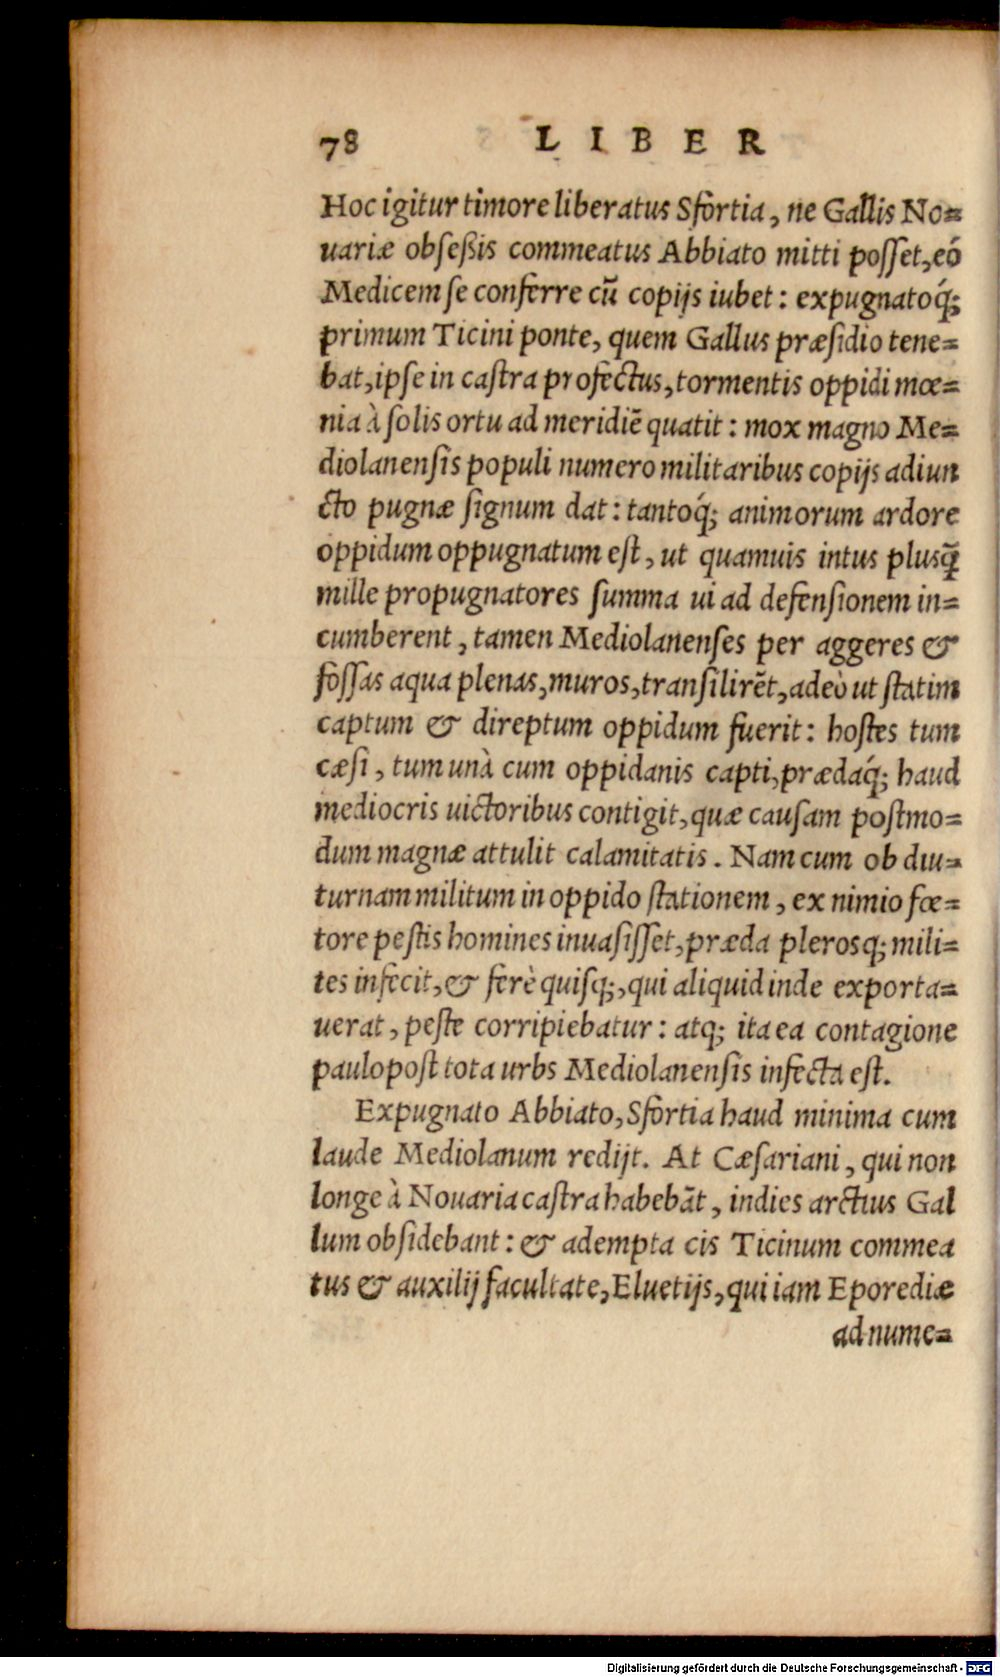 78 LIBER
Hoc igitur timore liberatus Sfortia, ne Gallis No=
uariæ obseßis commeatus Abbiato mitti posset, eó
Medicem se conferre cũ copijs iubet: expugnatoq́;
primum Ticini ponte, quem Gallus præsidio tene=
bat, ipse in castra profectus, tormentis oppidi mœ=
nia à solis ortu ad meridiẽ quatit: mox magno Me=
diolanensis populi numero militaribus copijs adiun
cto pugnæ signum dat: tantoq́; animorum ardore
oppidum oppugnatum est, ut quamuis intus plusq̃
mille propugnatores summa ui ad defensionem in=
cumberent, tamen Mediolanenses per aggeres &
fossas aqua plenas, muros, transilirẽt, adeò ut statim
captum & direptum oppidum fuerit: hostes tum
cæsi, tum unà cum oppidanis capti, prædaq́; haud
mediocris uictoribus contigit, quæ causam postmo=
dum magnæ attulit calamitatis. Nam cum ob diu=
turnam militum in oppido stationem, ex nimio fœ=
tore pestis homines inuasisset, præda plerosq; mili=
tes infecit, & ferè quisq;, qui aliquid inde exporta=
uerat, peste corripiebatur: atq; ita ea contagione
paulo post tota urbs Mediolanensis infecta est.
Expugnato Abbiato, Sfortia haud minima cum
laude Mediolanum redijt. At Cæsariani, qui non
longe à Nouaria castra habebãt, indies arctius Gal
lum obsidebant: & adempta cis Ticinum commea
tus & auxilij facultate, Eluetijs, qui iam Eporediæ
ad nume=
Digitalisierung gefördert durch die Deutsche Forschungsgemeinschaft - DFG